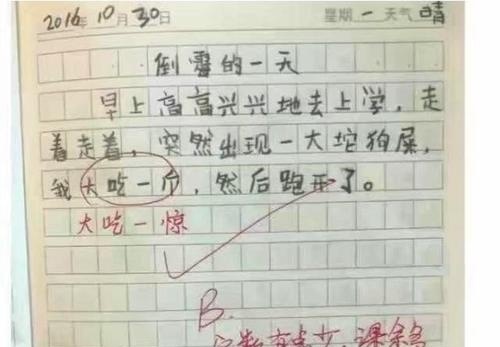 2016年10月30日 星期一 天气晴
倒霉的一天
早上高高兴兴地去上学，走
着走着，突然出现一大坨狗屎，
我大吃一斤，然后跑开了。
大吃一惊
B.